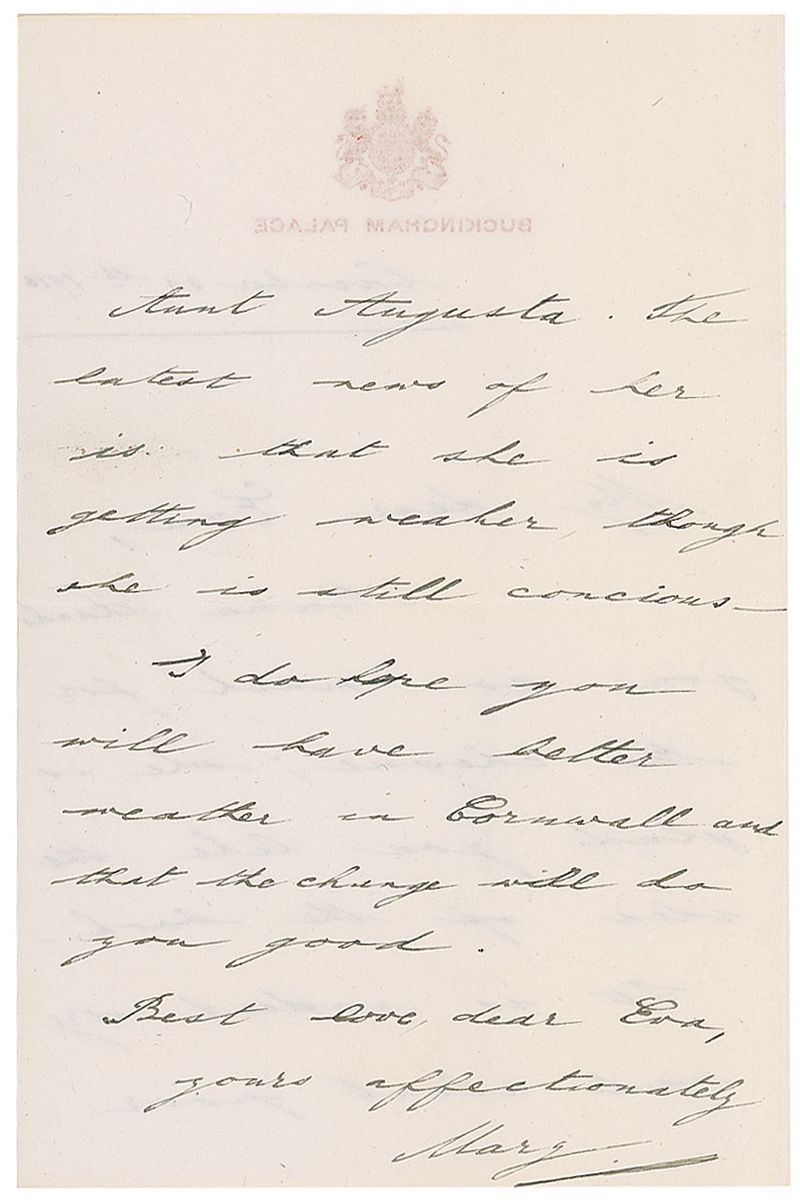 BUCKINGHAM PALACE
Aunt Augusta. The
latest news of her
is that she is
getting weaker, though
she is still concious—
I do hope you
will have better
weather in Cornwall and
that the change will do
you good.
Best love, dear Eva,
yours affectionately
Mary.